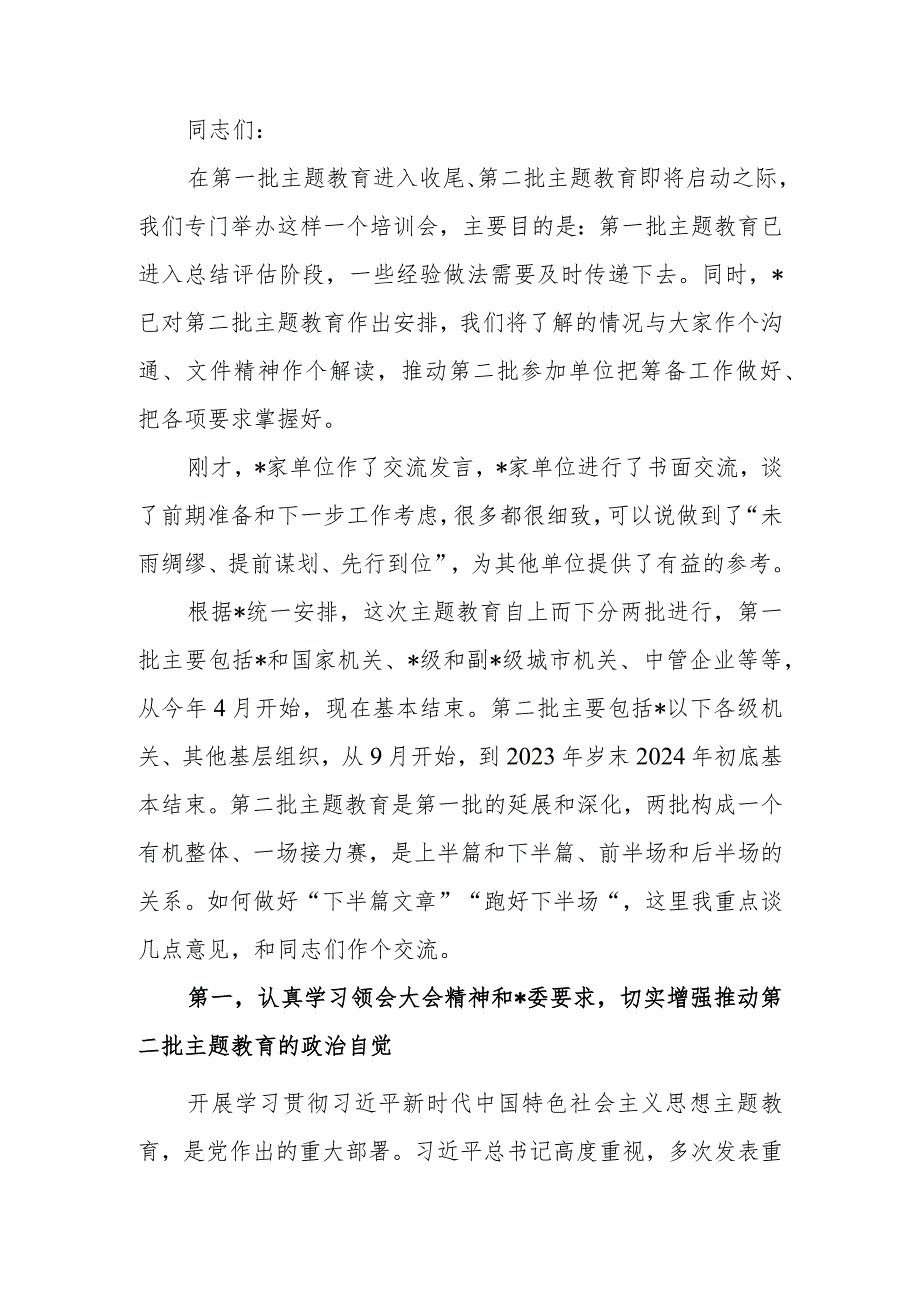 同志们：
在第一批主题教育进入收尾、第二批主题教育即将启动之际，
我们专门举办这样一个培训会，主要目的是：第一批主题教育已
进入总结评估阶段，一些经验做法需要及时传递下去。同时，*
已对第二批主题教育作出安排，我们将了解的情况与大家作个沟
通、文件精神作个解读，推动第二批参加单位把筹备工作做好、
把各项要求掌握好。
刚才，*家单位作了交流发言，*家单位进行了书面交流，谈
了前期准备和下一步工作考虑，很多都很细致，可以说做到了“未
雨绸缪、提前谋划、先行到位”，为其他单位提供了有益的参考。
根据*统一安排，这次主题教育自上而下分两批进行，第一
批主要包括*和国家机关、*级和副*级城市机关、中管企业等等，
从今年4月开始，现在基本结束。第二批主要包括*以下各级机
关、其他基层组织，从9月开始，到2023年岁末2024年初底基
本结束。第二批主题教育是第一批的延展和深化，两批构成一个
有机整体、一场接力赛，是上半篇和下半篇、前半场和后半场的
关系。如何做好“下半篇文章”“跑好下半场“，这里我重点谈
几点意见，和同志们作个交流。
第一，认真学习领会大会精神和*委要求，切实增强推动第
二批主题教育的政治自觉
开展学习贯彻习近平新时代中国特色社会主义思想主题教
育，是党作出的重大部署。习近平总书记高度重视，多次发表重